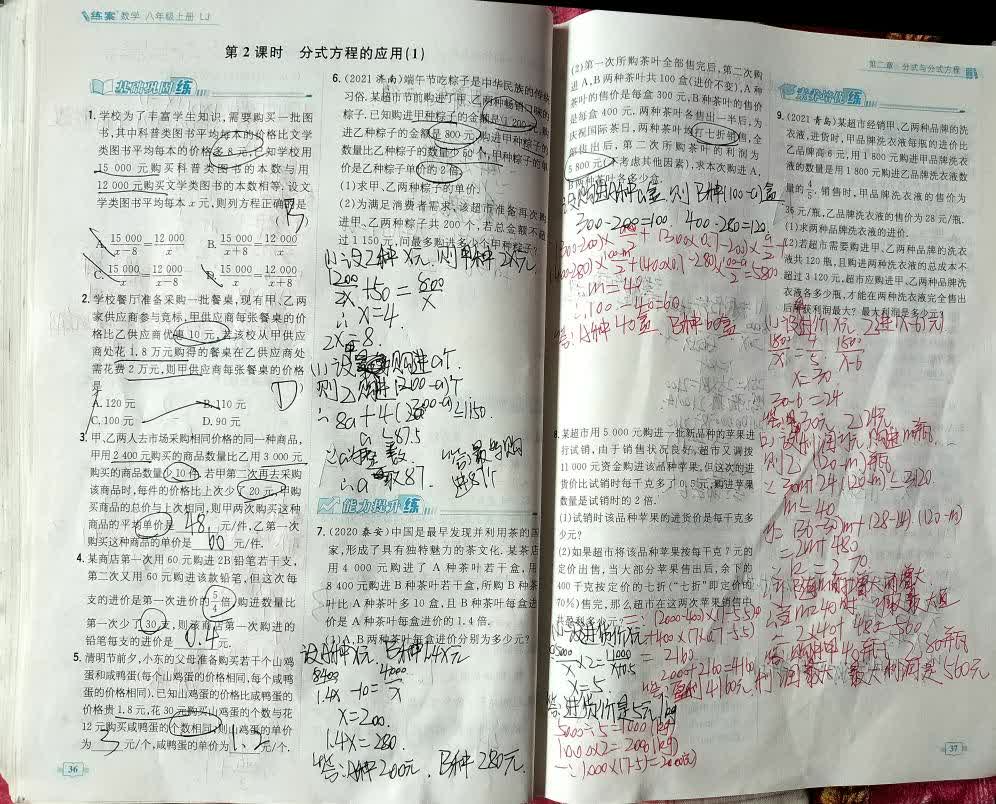 练案 数学 八年级上册 LJ
第2课时 分式方程的应用(1)
基础巩固练
1.学校为了丰富学生知识,需要购买一批图
书,其中科普类图书平均每本的价格比文学
类图书平均每本的价格多8元,已知学校用
15 000元购买科普类图书的本数与用
12 000元购买文学类图书的本数相等,设文
学类图书平均每本x元,则列方程正确的是
B
A. 15 000/x-8=12 000/x B. 15 000/x+8=12 000/x
C. 15 000/x=12 000/x-8 D. 15 000/x=12 000/x+8
2.学校餐厅准备采购一批餐桌,现有甲、乙两
家供应商参与竞标,甲供应商每张餐桌的价
格比乙供应商优惠10元,若该校从甲供应
商处花1.8万元购得的餐桌在乙供应商处
需花费2万元,则甲供应商每张餐桌的价格
是 (D)
A.120元 B.110元
C.100元 D.90元
3.甲、乙两人去市场采购相同价格的同一种商品,
甲用2 400元购买的商品数量比乙用3 000元
购买的商品数量少10件.若甲第二次再去采购
该商品时,每件的价格比上次少了20元,甲购
买商品的总价与上次相同,则甲两次购买这种
商品的平均单价是 48 元/件,乙第一次
购买这种商品的单价是 60 元/件.
4.某商店第一次用60元购进2B铅笔若干支,
第二次又用60元购进该款铅笔,但这次每
支的进价是第一次进价的5/4倍,购进数量比
第一次少了30支,则该商店第一次购进的
铅笔每支的进价是 0.4 元.
5.清明节前夕,小东的父母准备购买若干个山鸡
蛋和咸鸭蛋(每个山鸡蛋的价格相同,每个咸鸭
蛋的价格相同).已知山鸡蛋的价格比咸鸭蛋的
价格贵1.8元,花30元购买山鸡蛋的个数与花
12元购买咸鸭蛋的个数相同,则山鸡蛋的单价
为 3 元/个,咸鸭蛋的单价为 1.2 元/个.
36
6.(2021 济南)端午节吃粽子是中华民族的传统
习俗.某超市节前购进了甲、乙两种畅销口味的
粽子.已知购进甲种粽子的金额是1 200元,购
进乙种粽子的金额是800元,购进甲种粽子的
数量比乙种粽子的数量少50个,甲种粽子的单
价是乙种粽子单价的2倍.
(1)求甲、乙两种粽子的单价;
(2)为满足消费者需求,该超市准备再次购
进甲、乙两种粽子共200个,若总金额不超
过1 150元,问最多购进多少个甲种粽子?
(1)设乙种x元,则甲种2x元
1200/2x+50=800/x
∴x=4
2x=8
则乙购进(200-a)个
∴8a+4(200-a)≤1150
a≤87.5
能力提升练
7.(2020 泰安)中国是最早发现并利用茶的国
家,形成了具有独特魅力的茶文化.某茶店
用4 000元购进了A种茶叶若干盒,用
8 400元购进B种茶叶若干盒,所购B种茶
叶比A种茶叶多10盒,且B种茶叶每盒进
价是A种茶叶每盒进价的1.4倍.
(1)A,B两种茶叶每盒进价分别为多少元?
设A种x元,B种1.4x元
8400/1.4x-10=4000/x
x=200
1.4x=280
答:A种200元,B种280元.
(2)第一次所购茶叶全部售完后,第二次购
进A,B两种茶叶共100盒(进价不变),A种
茶叶的售价是每盒300元,B种茶叶的售价
是每盒400元.两种茶叶各售出一半后,为
庆祝国际茶日,两种茶叶均打七折销售,全
部售出后,第二次所购茶叶的利润为
5 800元(不考虑其他因素),求本次购进A,
B两种茶叶各多少盒.
300-200=100 400-280=120
∴m=40
100-40=60
答:A种40盒,B种60盒
8.某超市用5 000元购进一批新品种的苹果进
行试销,由于销售状况良好,超市又调拨
11 000元资金购进该品种苹果,但这次的进
货价比试销时每千克多了0.5元,购进苹果
数量是试销时的2倍.
(1)试销时该品种苹果的进货价是每千克多
少元?
(2)如果超市将该品种苹果按每千克7元的
定价出售,当大部分苹果售出后,余下的
400千克按定价的七折("七折"即定价的
70%)售完,那么超市在这两次苹果销售中
共盈利多少元?
5000/x×2=11000/x+0.5
x=5
答:进货价是5元/kg
5000÷5=1000(kg)
1000×2=2000(kg)
∴1000×(7-5)=2000(元)
=2160
2000+2160=4160
第二章 分式与分式方程
素养培优练
9.(2021 青岛)某超市经销甲、乙两种品牌的洗
衣液,进货时,甲品牌洗衣液每瓶的进价比
乙品牌高6元,用1 800元购进甲品牌洗衣
液的数量是用1 800元购进乙品牌洗衣液数
量的4/5.销售时,甲品牌洗衣液的售价为
36元/瓶,乙品牌洗衣液的售价为28元/瓶.
(1)求两种品牌洗衣液的进价.
(2)若超市需要购进甲、乙两种品牌的洗衣
液共120瓶,且购进两种洗衣液的总成本不
超过3 120元,超市应购进甲、乙两种品牌洗
衣液各多少瓶,才能在两种洗衣液完全售出
后所获利润最大?最大利润是多少元?
x=30
30-6=24
则乙(120-m)瓶
∴30m+24(120-m)≤3120
m≤40
=2m+480
37